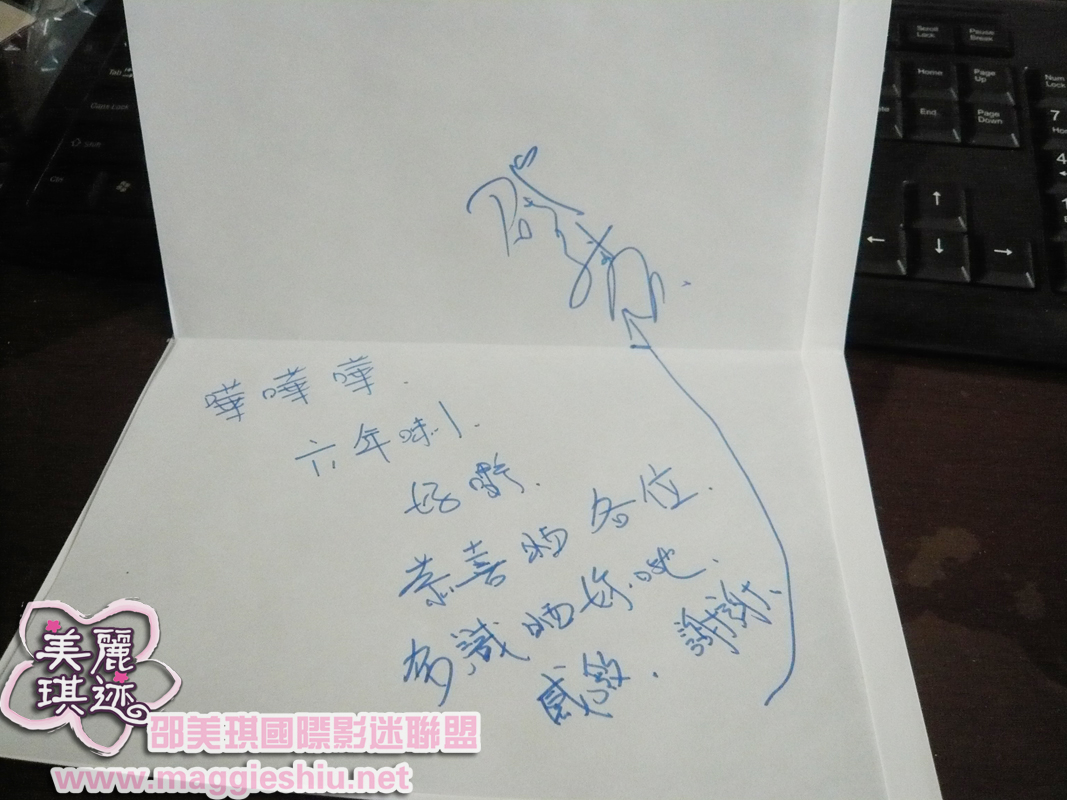 嘩嘩嘩.
六年喇.
好嘢.
恭喜晒各位.
多識晒好.吔.
感激. 謝謝.
美麗
琪迹
邵美琪國際影迷聯盟
www.maggieshiu.net
Tab
Caps Lock
Scroll Lock
Pause Break
Home
Page Up
End
Page Down
Num Lock
7
4